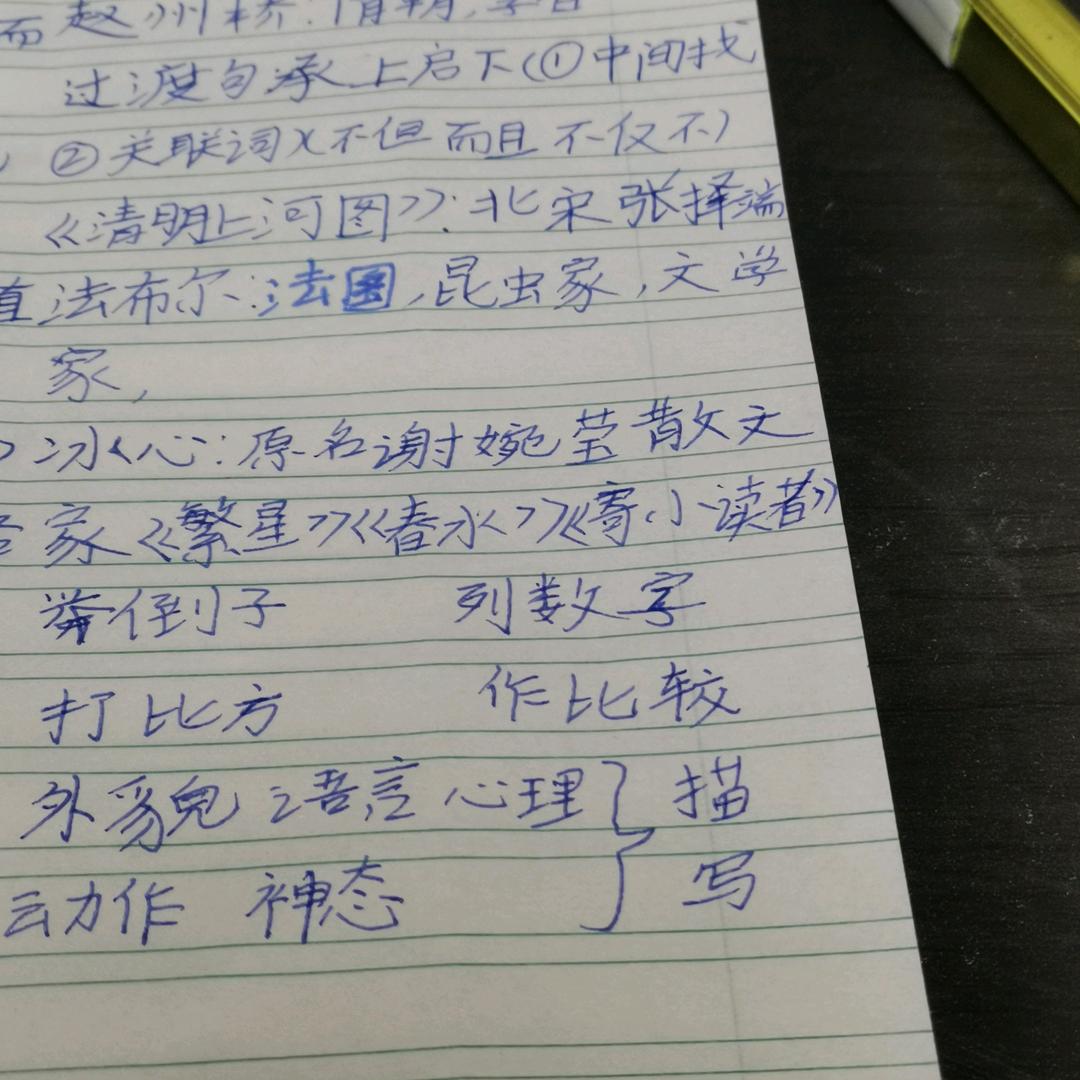 而赵州桥:隋朝,李春
过渡句承上启下(①中间找
②关联词(不但 而且 不仅不)
《清明上河图》:北宋张择端
直法布尔:法国,昆虫家,文学
家,
冰心:原名谢婉莹 散文
家《繁星》《春水》《寄小读者》
举例子 列数字
打比方 作比较
外貌 语言 心理 } 描
动作 神态 写